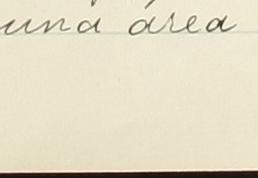 una área